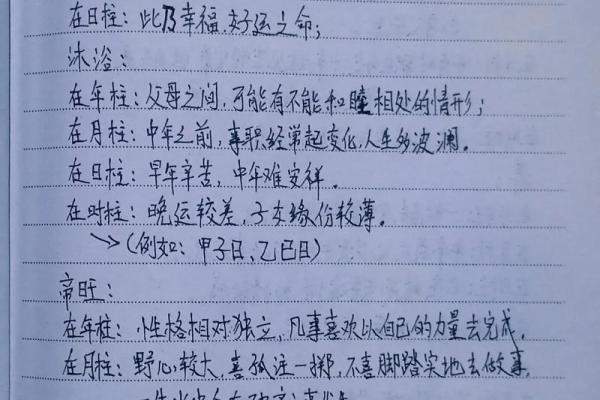 在日柱：此乃幸福，好运之命；
沐浴：
在年柱：父母之间，可能有不能和睦相处的情形；
在月柱：中年之前，事职经常起变化，人生多波澜。
在日柱：早年辛苦，中年难安祥。
在时柱：晚运较差，子女缘份较薄。
→（例如：甲子日、乙巳日）
帝旺：
在年柱：性格相对独立，凡事喜欢以自己的力量去完成，
在月柱：野心较大，喜孤注一掷，不喜脚踏实地去做事，